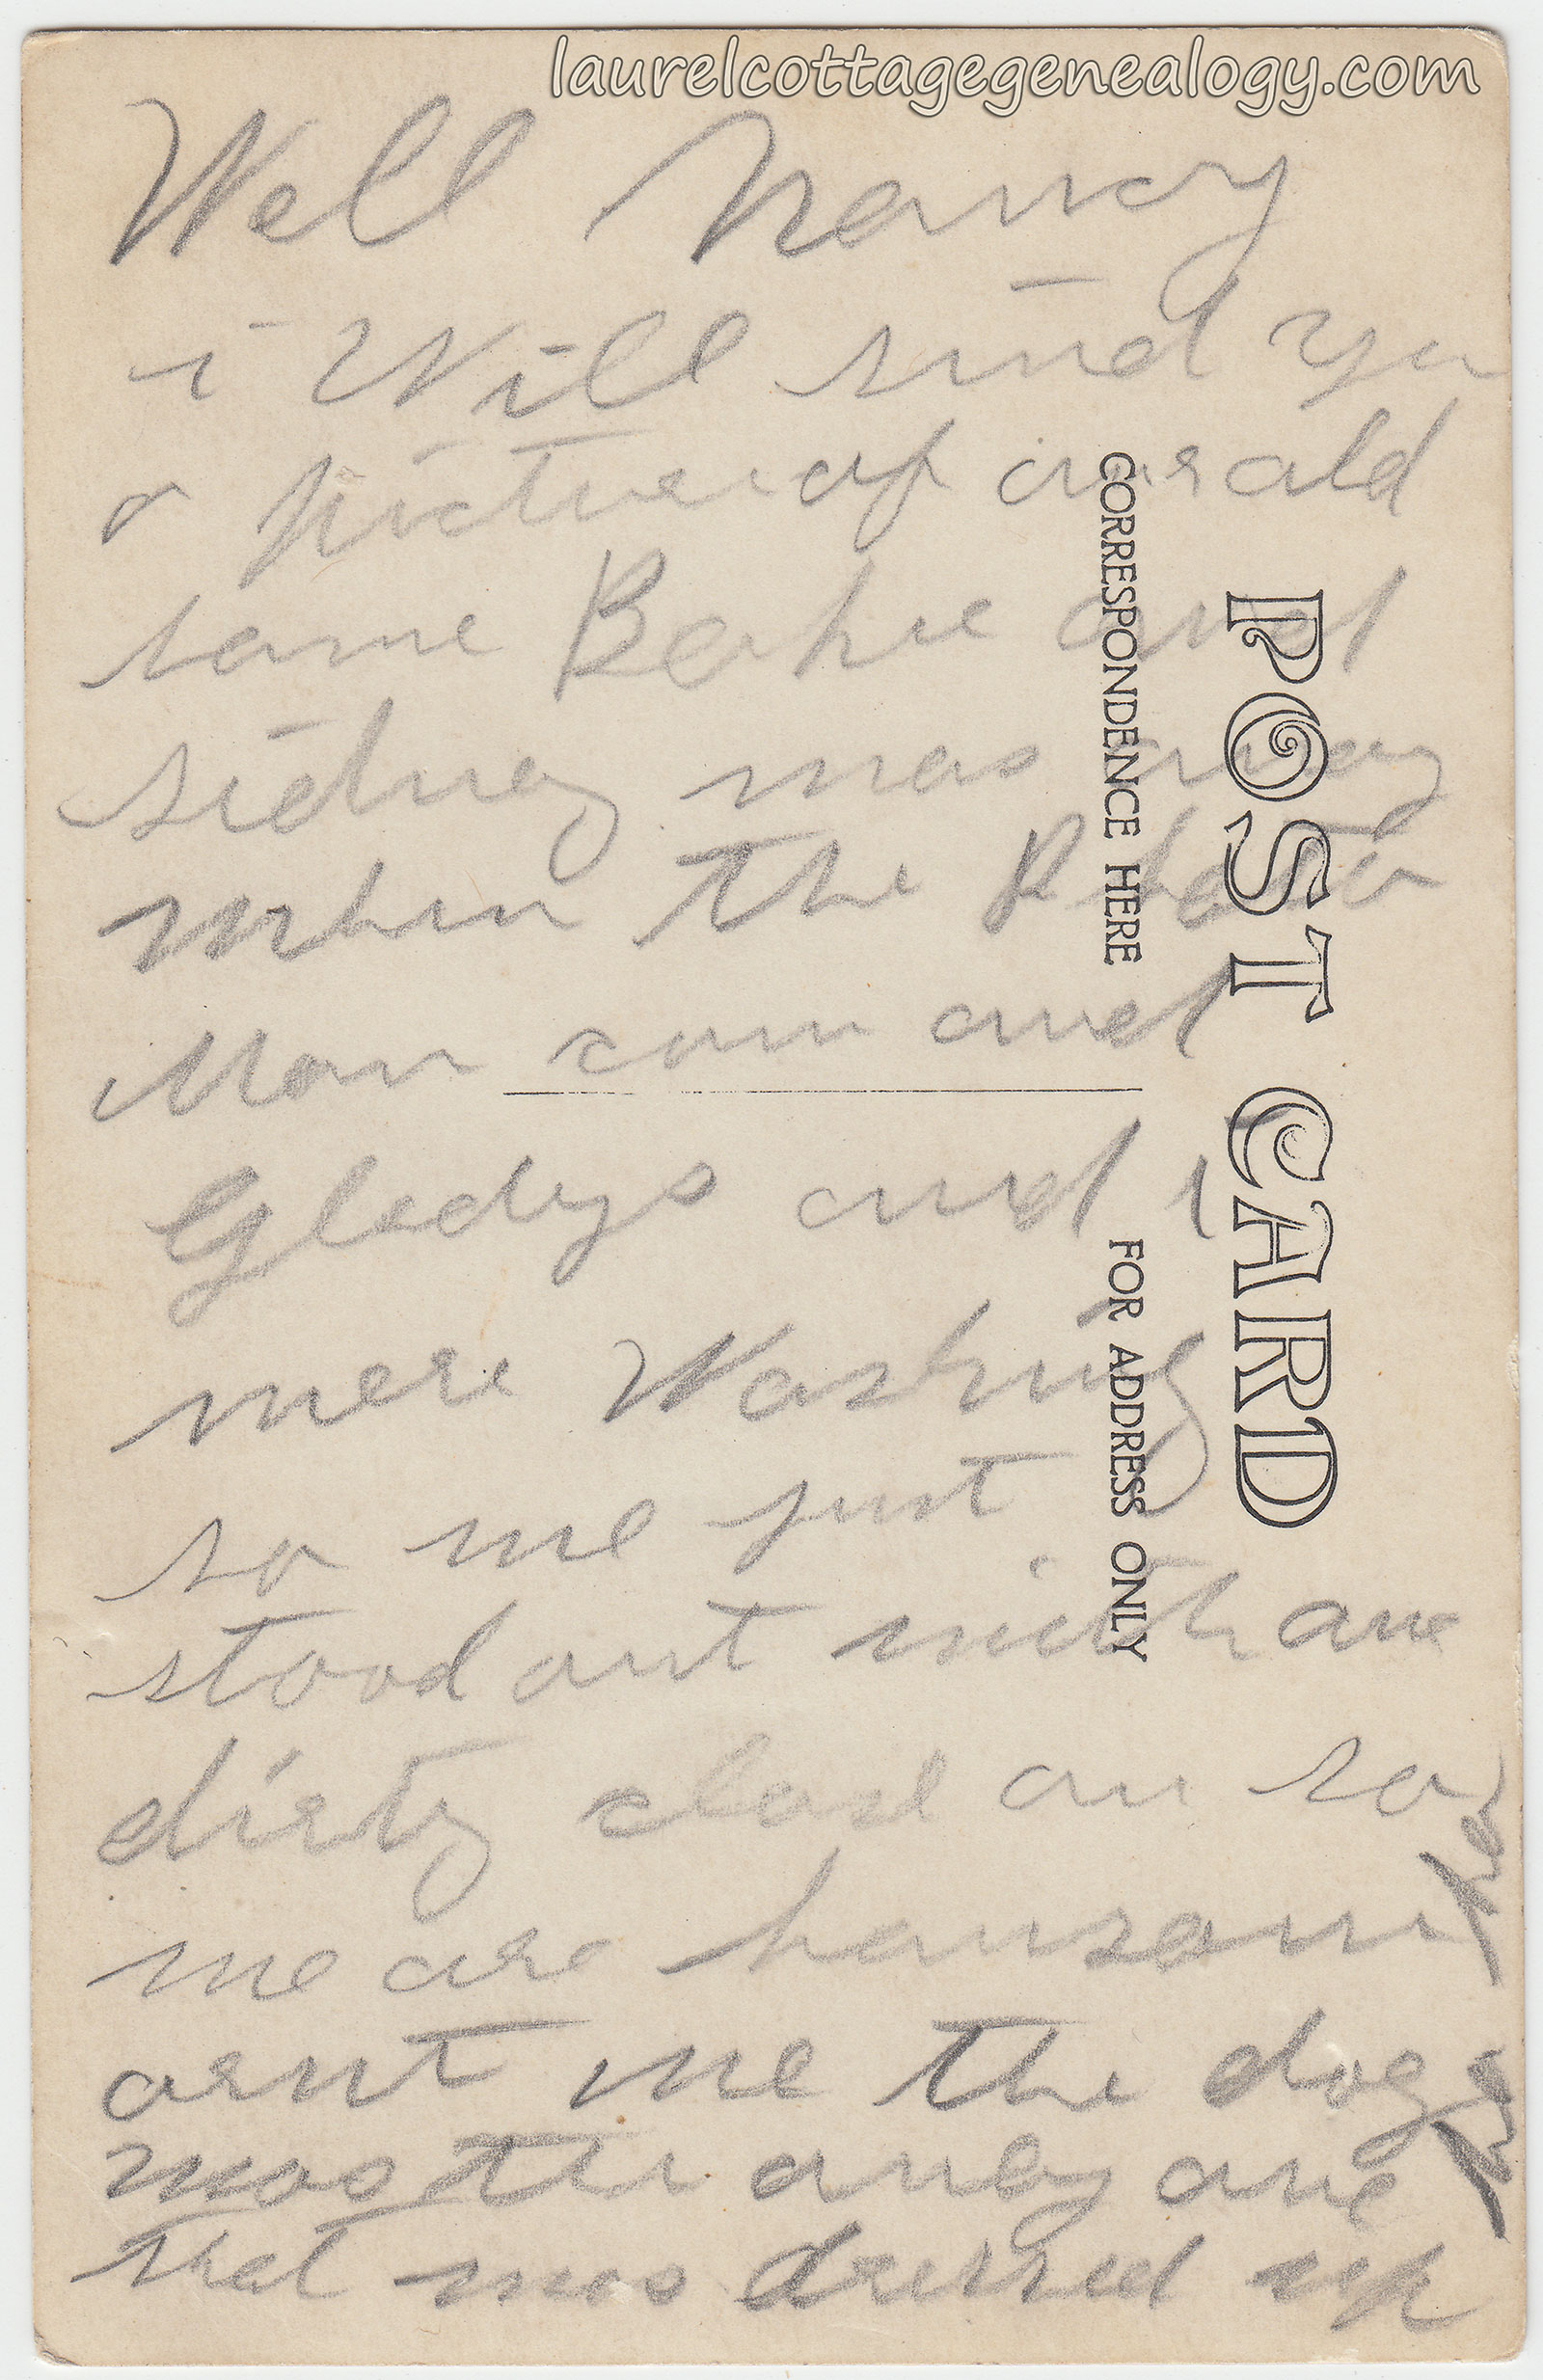 laurelcottagegenealogy.com
Well Nancy
i Will sind you
a picture of our old
home and
sidney was away
when the Photo
Man com and
Gladys and i
were Washing
so we just
stood out with our
dirty clos on so
we are hansom
arnt we the dog
was the only one
that was dressed up
POST CARD
CORRESPONDENCE HERE
FOR ADDRESS ONLY